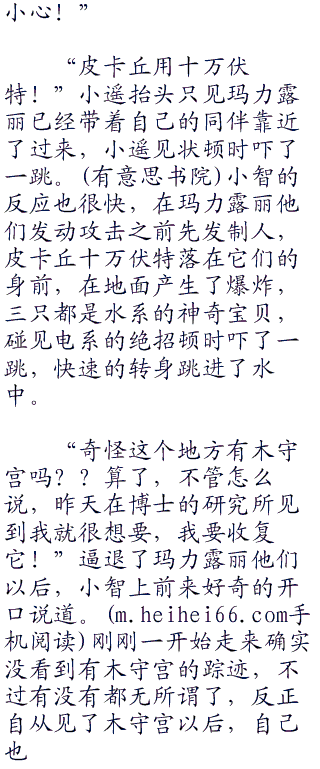 小心！”
“皮卡丘用十万伏
特！”小遥抬头只见玛力露
丽已经带着自己的同伴靠近
了过来，小遥见状顿时吓了
一跳。(有意思书院)小智的
反应也很快，在玛力露丽他
们发动攻击之前先发制人，
皮卡丘十万伏特落在它们的
身前，在地面产生了爆炸，
三只都是水系的神奇宝贝，
碰见电系的绝招顿时吓了一
跳，快速的转身跳进了水
中。
“奇怪这个地方有木守
宫吗？？算了，不管怎么
说，昨天在博士的研究所见
到我就很想要，我要收复
它！”逼退了玛力露丽他们
以后，小智上前来好奇的开
口说道。(m.heihei66.com手
机阅读)刚刚一开始走来确实
没看到有木守宫的踪迹，不
过有没有都无所谓了，反正
自从见了木守宫以后，自己
也